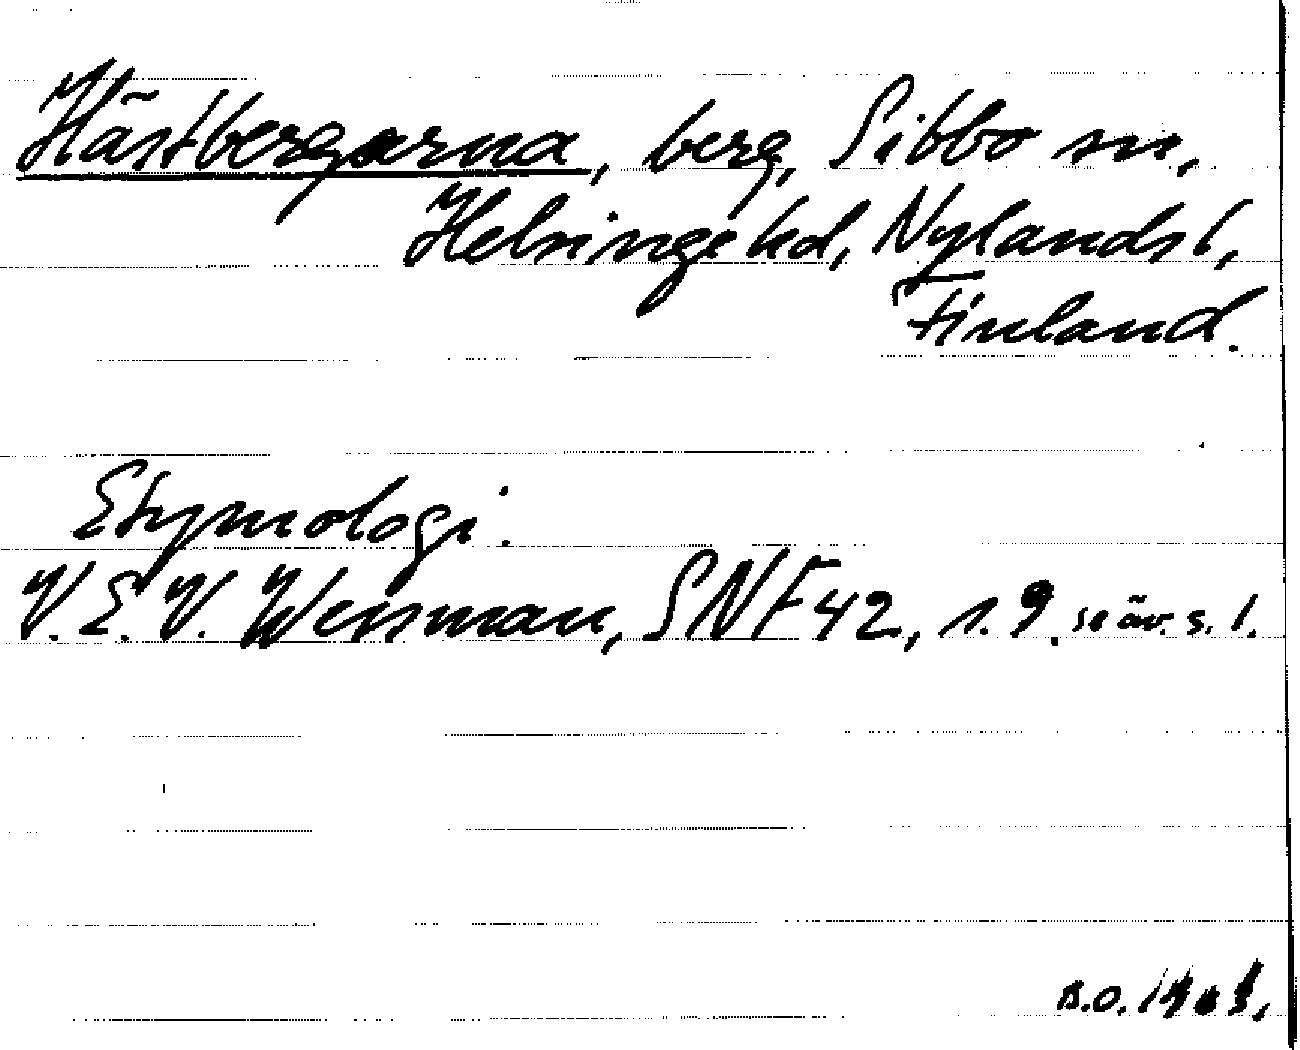 Hästbergarna, berg, Sibbo sn,
Helsinge hd, Nylands l,
Finland.
Etymologi:
V. E. V. Wessman, SNF 42, s. 9. se äv. s. 1.
B.O.